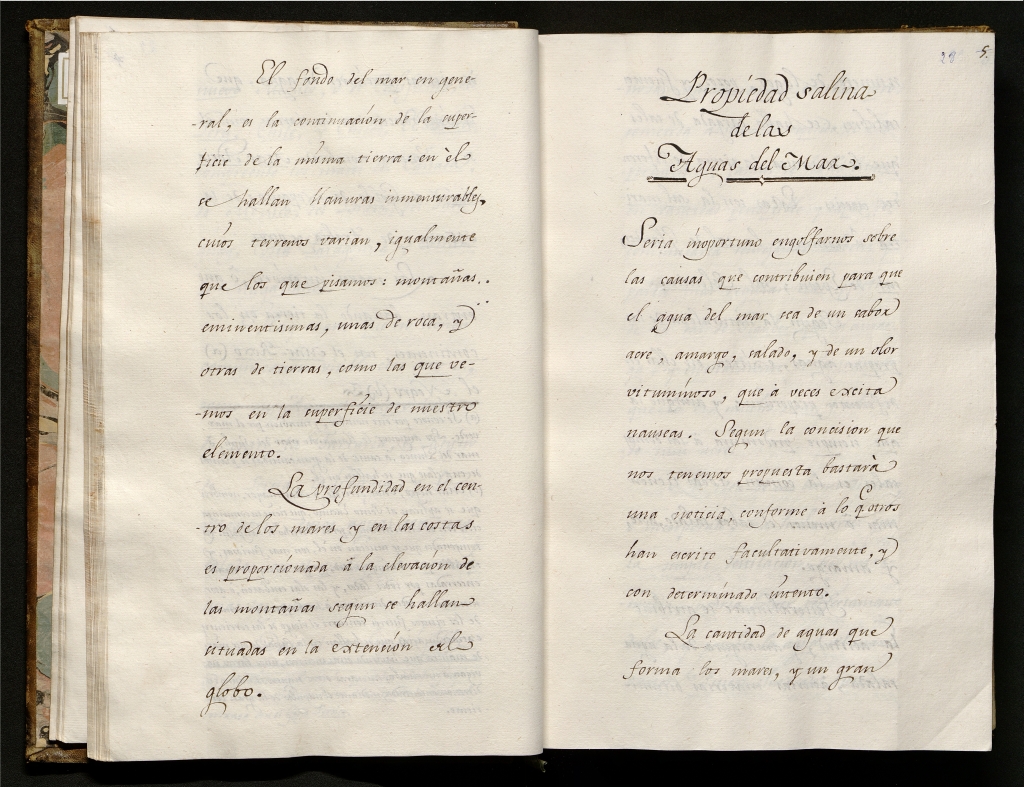 El fondo del mar en gene-
-ral, es la continuación de la super-
ficie de la misma tierra: en èl
se hallan llanuras inmensurables,
cuios terrenos varian, igualmente
que los que pisamos: montañas..
eminentisimas, unas de roca, y
otras de tierras, como las que ve-
-mos en la superficie de nuestro
elemento.
La profundidad en el cen-
-tro de los mares y en las costas
es proporcionada à la elevación de
las montañas segun se hallan
situadas en la extención del
globo.
28 5.
Propiedad salina
de las
Aguas del Mar.
Seria inoportuno engolfarnos sobre
las causas que contribuien para que
el agua del mar sea de un sabor
acre, amargo, salado, y de un olor
vituminoso, que à veces excita
nauseas. Segun la concision que
nos tenemos propuesta bastarà
una noticia, conforme à lo q otros
han escrito facultativamente, y
con determinado intento.
La cantidad de aguas que
forma los mares, y un gran